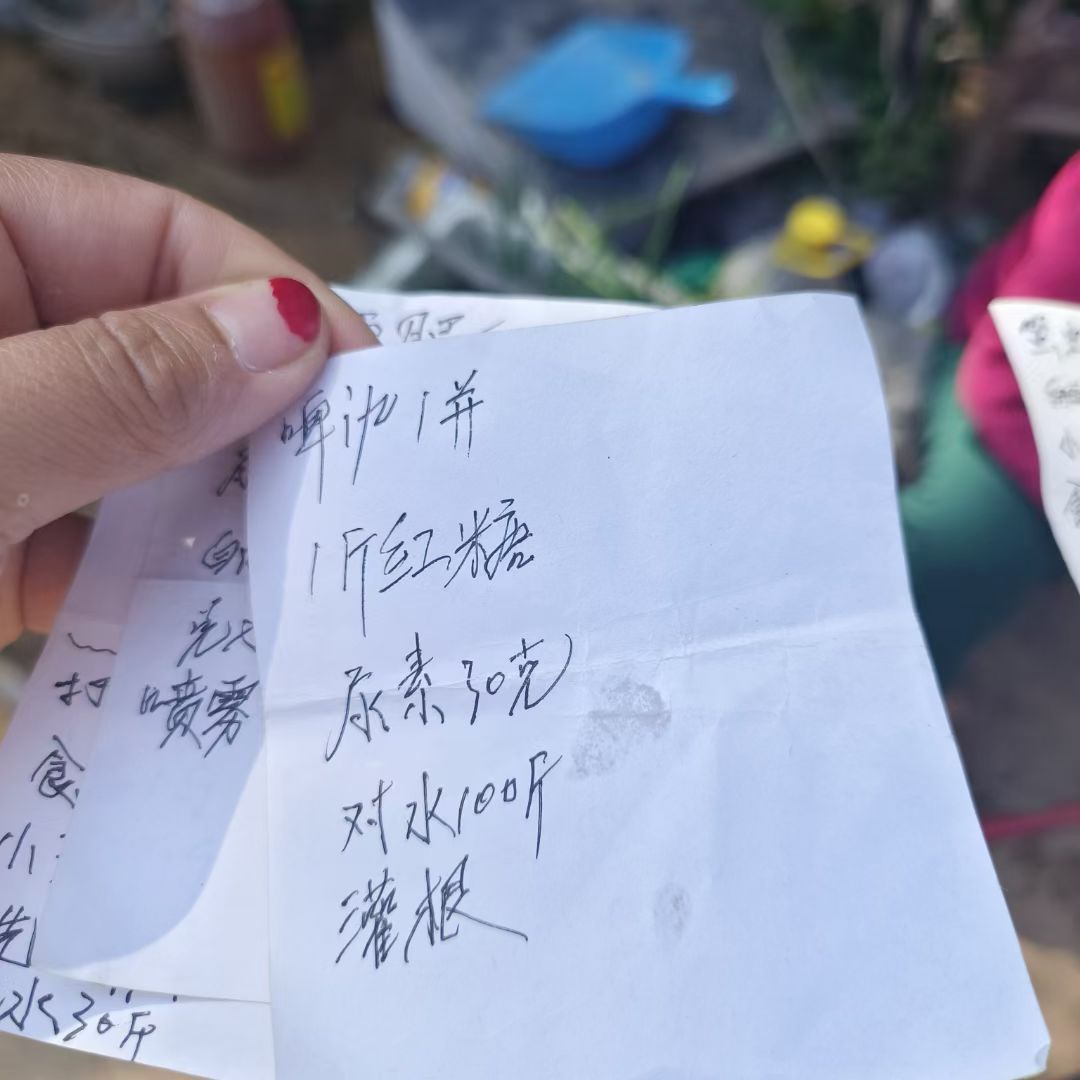 啤汃1并
1斤红糖
尿素30克
对水100斤
灌根
喷雾
打
食
小
先
水30斤